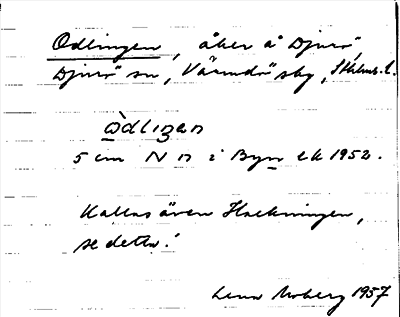 Odlingen, åker å Djurö,
Djurö sn, Värmdö sby, Sthlms l.
ò̀dlıŋən
5 cm N n i Byn ek 1952.
Kallas även Hackningen,
se detta!
Lena Moberg 1957